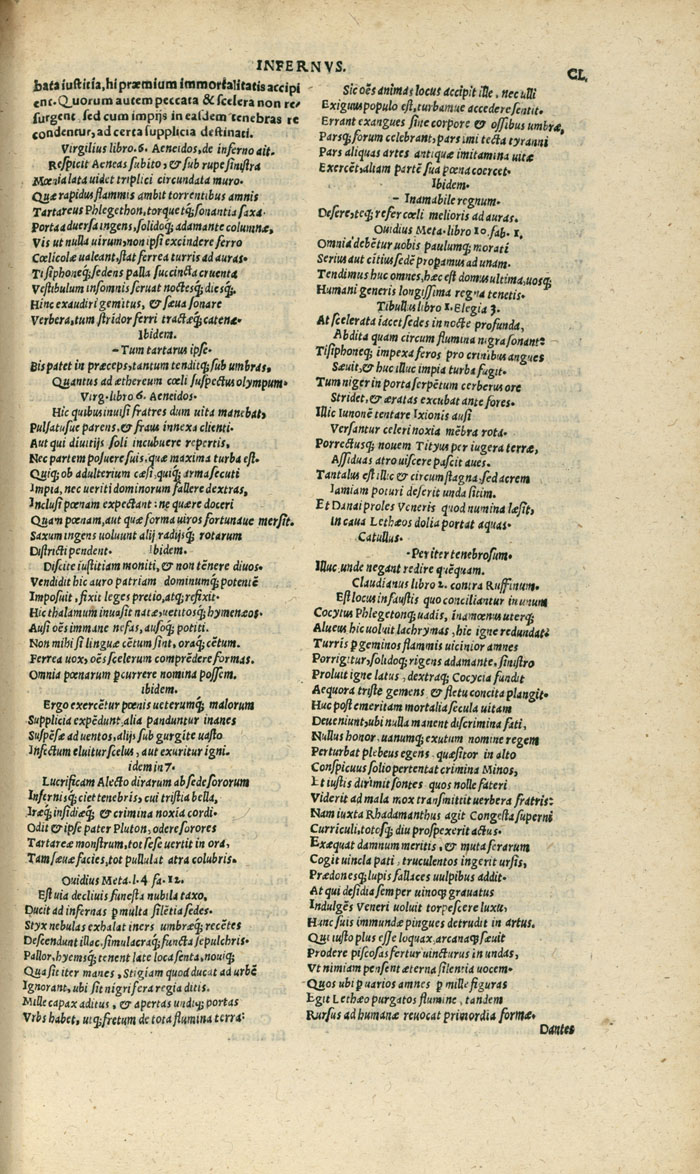 INFERNVS.
CL.
bata iustitia, hi præmium immortalitatis accipi
ent. Quorum autem peccata & scelera non re/
surgent sed cum impijs in easdem tenebras re
condentur, ad certa supplicia destinati.
Virgilius libro. 6. Aeneidos, de inferno ait.
Respicit Aeneas subito, & sub rupe sinistra
Mœnia lata uidet triplici circundata muro.
Quæ rapidus flammis ambit torrentibus amnis
Tartareus Phlegethon, torquetq; sonantia saxa.
Porta aduersa ingens, solidoq; adamante columnæ,
Vis ut nulla uirum, non ipsi excindere ferro
Cœlicolæ ualeant, stat ferrea turris ad auras.
Tisiphoneq; sedens palla succincta cruenta
Vestibulum insomnis seruat noctesq; diesq;,
Hinc exaudiri gemitus, & sæua sonare
Verbera, tum stridor ferri tractæq; catenæ.
Ibidem.
– Tum tartarus ipse.
Bis patet in præceps, tantum tenditq; sub umbras,
Quantus ad æthereum cœli suspectus olympum.
Virg. libro 6. Aeneidos.
Hic quibus inuisi fratres dum uita manebat,
Pulsatusue parens, & fraus innexa clienti.
Aut qui diuitijs soli incubuere repertis,
Nec partem posuere suis, quæ maxima turba est.
Quiq; ob adulterium cæsi, quiq; arma secuti
Impia, nec ueriti dominorum fallere dextras,
Inclusi pœnam expectant: ne quære doceri
Quam pœnam, aut quæ forma uiros fortunaue mersit.
Saxum ingens uoluunt alij radijsq; rotarum
Districti pendent. Ibidem.
Discite iustitiam moniti, & non tēnere diuos.
Vendidit hic auro patriam dominumq; potentē
Imposuit, fixit leges pretio, atq; refixit.
Hic thalamum inuasit natæ, uetitosq; hymenæos.
Ausi oēs immane nefas, ausoq; potiti.
Non mihi si linguæ cētum sint, oraq; cētum.
Ferrea uox, oēs scelerum comprēdere formas.
Omnia pœnarum ꝑcurrere nomina possem.
ibidem.
Ergo exercētur pœnis ueterumq; malorum
Supplicia expēdunt, alia panduntur inanes
Suspēsæ ad uentos, alijs sub gurgite uasto
Infectum eluitur scelus, aut exuritur igni.
idem in 7.
Lucrificam Alecto dirarum ab sede sororum
Infernisq; ciet tenebris, cui tristia bella,
Iræq; insidiæq; & crimina noxia cordi.
Odit & ipse pater Pluton, odere sorores
Tartareæ monstrum, tot sese uertit in ora,
Tam sæuæ facies, tot pullulat atra colubris.
Ouidius Meta. l. 4 fa. 12.
Est uia decliuis funesta nubila taxo,
Ducit ad infernas ꝑ multa silētia sedes.
Styx nebulas exhalat iners umbræq; recētes
Descendunt illac, simulacraq; functa sepulchris.
Pallor, hyemsq; tenent late loca senta, nouiq;
Qua sit iter manes, Stigiam quod ducat ad urbē
Ignorant, ubi sit nigri fera regia ditis.
Mille capax aditus, & apertas undiq; portas
Vrbs habet, utq; fretum de tota flumina terra:
Sic oēs animas locus accipit ille, nec ulli
Exiguus populo est, turbamue accedere sentit.
Errant exangues sine corpore & ossibus umbræ,
Parsq; forum celebrant, pars imi tecta tyranni
Pars aliquas artes antiquæ imitamina uitæ
Exercēt, aliam partē sua pœna coercet.
Ibidem.
– Inamabile regnum.
Desere, teq; refer cœli melioris ad auras.
Ouidius Meta. libro 10. fab. 1,
Omnia debētur uobis paulumq; morati
Serius aut citius sedē propamus ad unam.
Tendimus huc omnes, hæc est domus ultima, uosq;
Humani generis longissima regna tenetis.
Tibullus libro 1. Elegia 3.
At scelerata iacet sedes in nocte profunda,
Abdita quam circum flumina nigra sonant:
Tisiphoneq; impexa feros pro crinibus angues
Sæuit, & huc illuc impia turba fugit.
Tum niger in porta serpētum cerberus ore
Stridet, & æratas excubat ante fores.
Illic Iunonē tentare Ixionis ausi
Versantur celeri noxia mēbra rota.
Porrectusq; nouem Tityus per iugera terræ,
Assiduas atro uiscere pascit aues.
Tantalus est illic & circum stagna, sed acrem
Iam iam poturi deserit unda sitim.
Et Danai proles Veneris quod numina læsit,
In caua Lethæos dolia portat aquas.
Catullus.
-Per iter tenebrosum.
Illuc unde negant redire quēquam.
Claudianus libro 2. contra Ruffinum.
Est locus infaustis quo conciliantur in unum
Cocytus Phlegetonq; uadis, inamœnus uterq;
Alueus hic uoluit lachrymas, hic igne redundat:
Turris ꝑ geminos flammis uicinior amnes
Porrigitur, solidoq; rigens adamante, sinistro
Proluit igne latus, dextraq; Cocycia fundit
Aequora triste gemens & fletu concita plangit.
Huc post emeritam mortalia secula uitam
Deueniunt, ubi nulla manent discrimina fati,
Nullus honor uanumq; exutum nomine regem
Perturbat plebeus egens quæsitor in alto
Conspicuus solio pertentat crimina Minos,
Et iustis dirimit sontes quos nolle fateri
Viderit ad mala mox transmittit uerbera fratris:
Nam iuxta Rhadamanthus agit Congesta superni
Curriculi, totosq; diu prospexerit actus.
Exæquat damnum meritis, & muta ferarum
Cogit uincla pati, truculentos ingerit ursis,
Prædonesq; lupis fallaces uulpibus addit.
At qui desidia semper uinoq; grauatus
Indulgēs Veneri uoluit torpescere luxu,
Hanc suis immundæ pingues detrudit in artus.
Qui iusto plus esse loquax, arcanaq; sæuit
Prodere piscosas fertur uincturus in undas,
Vt nimiam pensent æterna silentia uocem.
Quos ubi ꝑ uarios amnes ꝑ mille figuras
Egit Lethæo purgatos flumine, tandem
Rursus ad humanæ reuocat primordia formæ.
Dantes